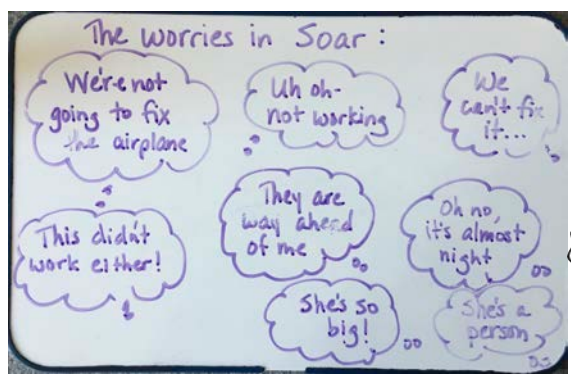 The worries in Soar:
We're not
going to fix
the airplane
Uh oh-
not working
We
can't fix
it...
This didn't
work either!
They are
way ahead
of me
Oh no,
it's almost
night
She's so
big!
She's a
person